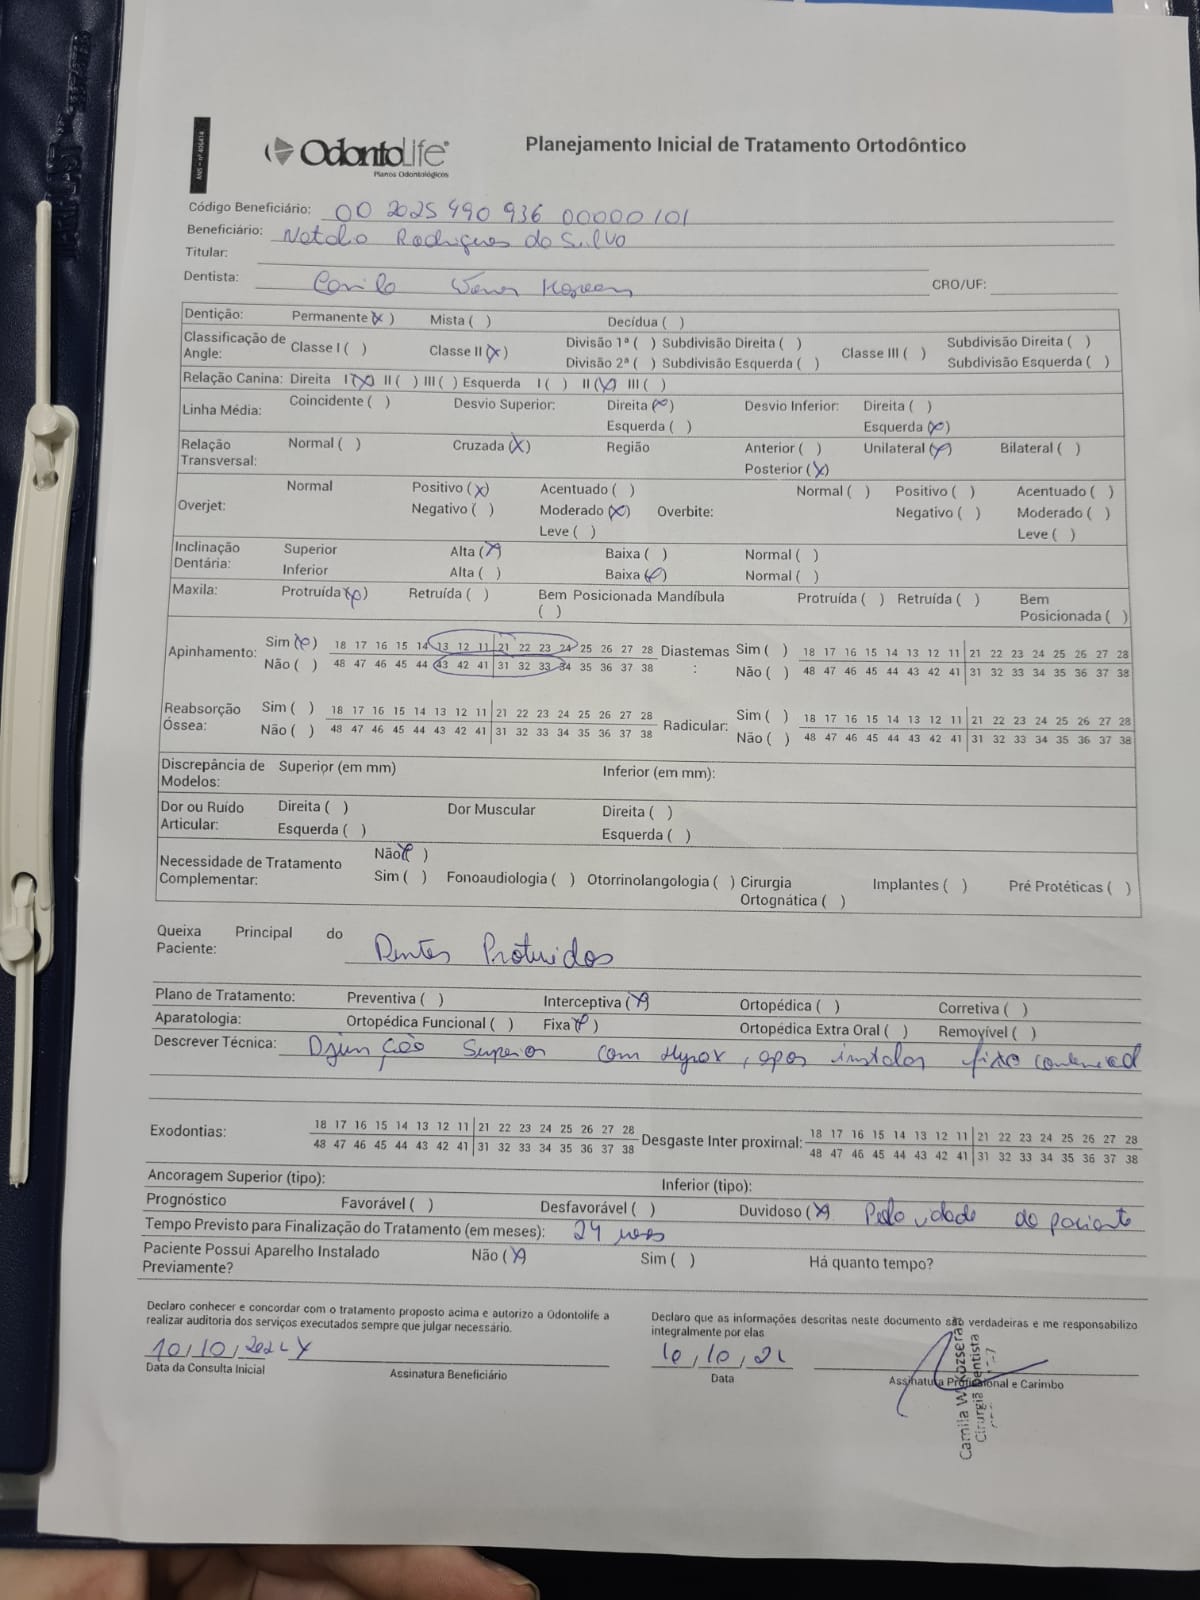 ANS - nº 406414
OdontoLife®
Planos Odontológicos
Planejamento Inicial de Tratamento Ortodôntico
Código Beneficiário: 00 2025 490 936 00000 101
Beneficiário: Natalia Rodrigues da Silva
Titular:
Dentista: Camila CRO/UF:
Dentição: Permanente (x) Mista ( ) Decídua ( )
Classificação de Angle: Classe I ( ) Classe II (x) Divisão 1ª ( ) Subdivisão Direita ( ) Divisão 2ª ( ) Subdivisão Esquerda ( ) Classe III ( ) Subdivisão Direita ( ) Subdivisão Esquerda ( )
Relação Canina: Direita I (x) II ( ) III ( ) Esquerda I ( ) II (x) III ( )
Linha Média: Coincidente ( ) Desvio Superior: Direita (x) Esquerda ( ) Desvio Inferior: Direita ( ) Esquerda (x)
Relação Transversal: Normal ( ) Cruzada (x) Região Anterior ( ) Posterior (x) Unilateral (x) Bilateral ( )
Overjet: Normal Positivo (x) Negativo ( ) Acentuado ( ) Moderado (x) Leve ( ) Overbite: Normal ( ) Positivo ( ) Negativo ( ) Acentuado ( ) Moderado ( ) Leve ( )
Inclinação Dentária: Superior Alta (x) Baixa ( ) Normal ( )
Inferior Alta ( ) Baixa (x) Normal ( )
Maxila: Protruída (x) Retruída ( ) Bem Posicionada ( ) Mandíbula Protruída ( ) Retruída ( ) Bem Posicionada ( )
Apinhamento: Sim (x) 18 17 16 15 14 13 12 11 21 22 23 24 25 26 27 28 Diastemas : Sim ( ) 18 17 16 15 14 13 12 11 21 22 23 24 25 26 27 28
Não ( ) 48 47 46 45 44 43 42 41 31 32 33 34 35 36 37 38 Não ( ) 48 47 46 45 44 43 42 41 31 32 33 34 35 36 37 38
Reabsorção Óssea: Sim ( ) 18 17 16 15 14 13 12 11 21 22 23 24 25 26 27 28 Radicular: Sim ( ) 18 17 16 15 14 13 12 11 21 22 23 24 25 26 27 28
Não ( ) 48 47 46 45 44 43 42 41 31 32 33 34 35 36 37 38 Não ( ) 48 47 46 45 44 43 42 41 31 32 33 34 35 36 37 38
Discrepância de Modelos: Superior (em mm) Inferior (em mm):
Dor ou Ruído Articular: Direita ( ) Esquerda ( ) Dor Muscular Direita ( ) Esquerda ( )
Necessidade de Tratamento Complementar: Não (x) Sim ( ) Fonoaudiologia ( ) Otorrinolangologia ( ) Cirurgia Ortognática ( ) Implantes ( ) Pré Protéticas ( )
Queixa Principal do Paciente: Dentes Protuidos
Plano de Tratamento: Preventiva ( ) Interceptiva (x) Ortopédica ( ) Corretiva ( )
Aparatologia: Ortopédica Funcional ( ) Fixa (x) Ortopédica Extra Oral ( ) Removível ( )
Descrever Técnica: Disjunção Superior com Hyrax, apos instalar fixo
Exodontias: 18 17 16 15 14 13 12 11 21 22 23 24 25 26 27 28 Desgaste Inter proximal: 18 17 16 15 14 13 12 11 21 22 23 24 25 26 27 28
48 47 46 45 44 43 42 41 31 32 33 34 35 36 37 38 48 47 46 45 44 43 42 41 31 32 33 34 35 36 37 38
Ancoragem Superior (tipo): Inferior (tipo):
Prognóstico Favorável ( ) Desfavorável ( ) Duvidoso (x) Pela idade do paciente
Tempo Previsto para Finalização do Tratamento (em meses): 24 meses
Paciente Possui Aparelho Instalado Previamente? Não (x) Sim ( ) Há quanto tempo?
Declaro conhecer e concordar com o tratamento proposto acima e autorizo a Odontolife a realizar auditoria dos serviços executados sempre que julgar necessário.
10/10/2024 X
Data da Consulta Inicial Assinatura Beneficiário
Declaro que as informações descritas neste documento são verdadeiras e me responsabilizo integralmente por elas
10/10/24
Data Assinatura Profissional e Carimbo
Camila W. Kozsera
Cirurgiã Dentista